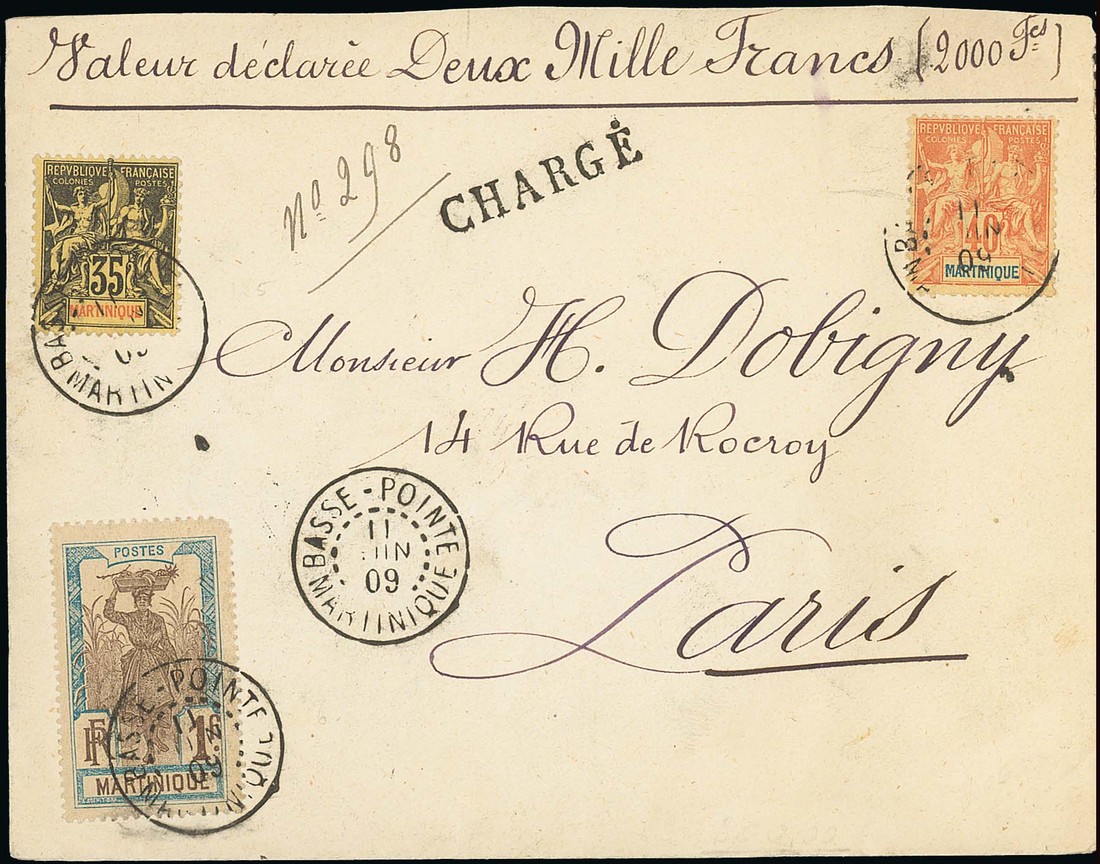 Valeur déclarée Deux Mille Francs (2000 Fcs)
CHARGÉ
No 298
REPVBLIQVE FRANÇAISE
COLONIES POSTES
35
MARTINIQUE
REPVBLIQVE FRANÇAISE
COLONIES POSTES
40
MARTINIQUE
11
09
MARTIN
Monsieur H. Dobigny
14 Rue de Rocroy
Paris
BASSE-POINTE
11
JUIN
09
MARTINIQUE
POSTES
RF
1f
MARTINIQUE
BASSE-POINTE
11
09